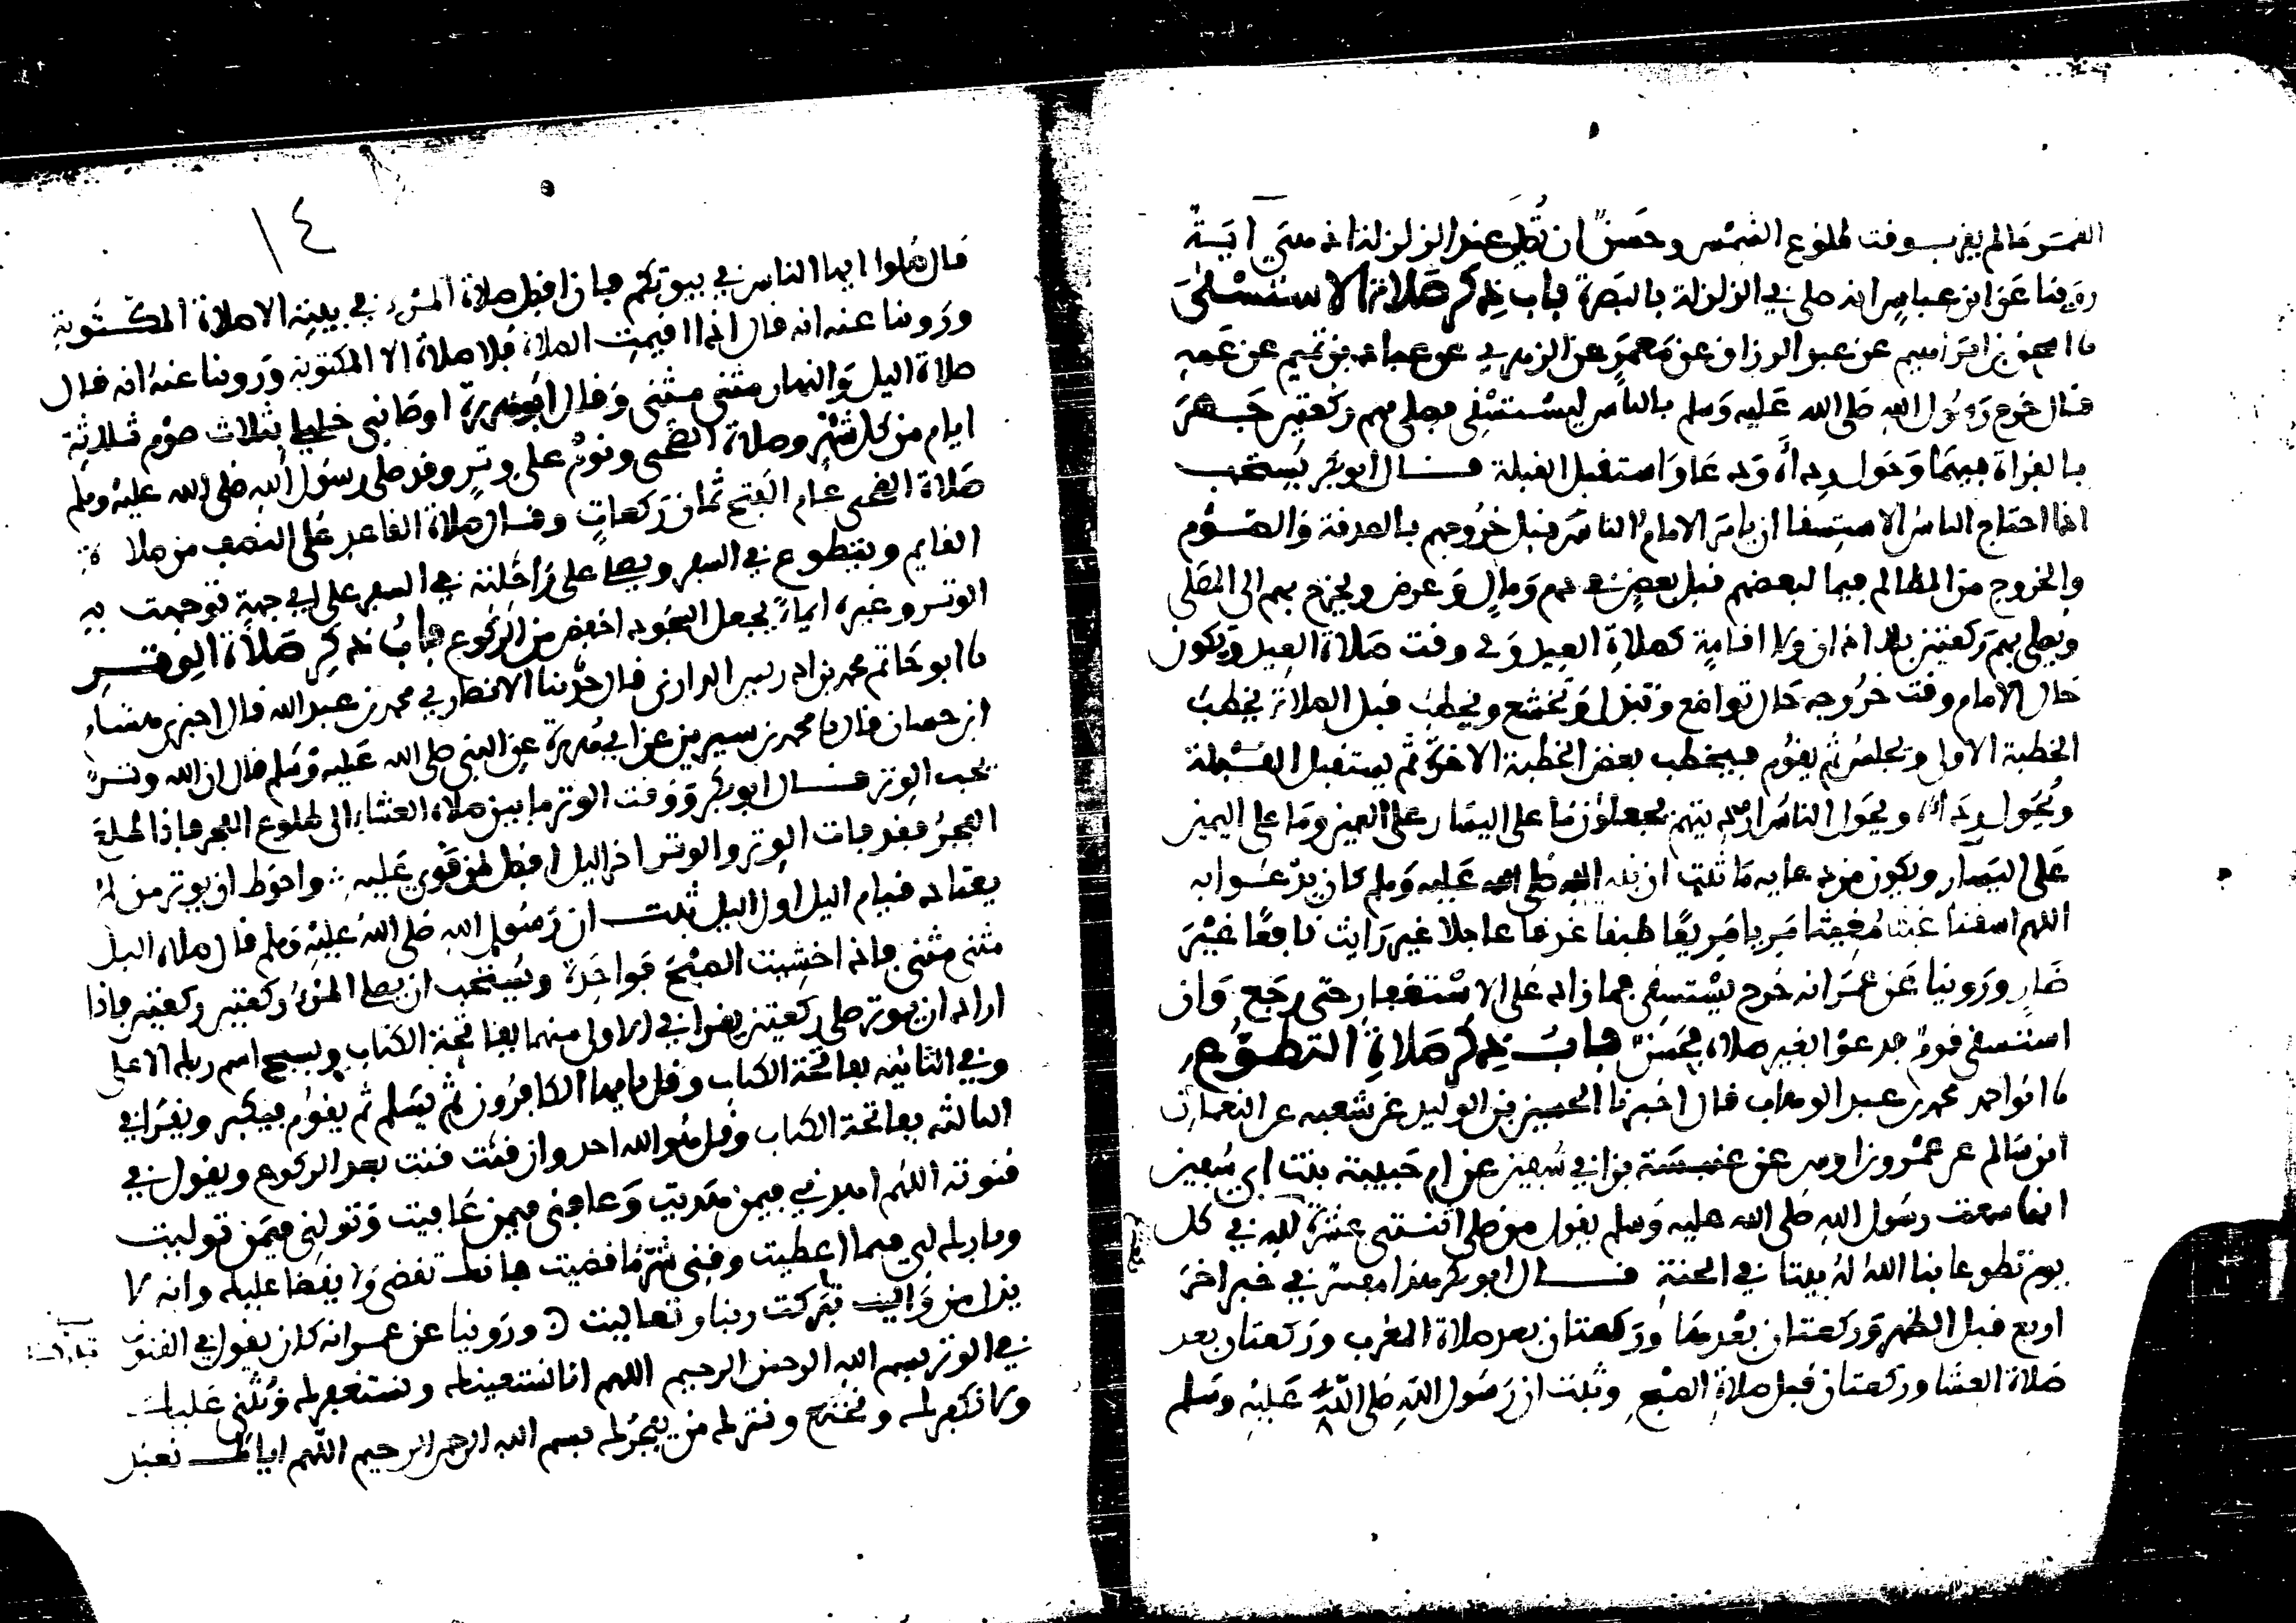 القمر ما لم يقرب وقت طلوع الشمس وحسن ان تصلى عند الزلزلة اذ هي آية
روينا عن ابن عباس انه صلى في الزلزلة بالبصرة باب ذكر صلاة الاستسقى
نا اسحق بن ابراهيم عن عبد الرزاق عن معمر عن الزهري عن عباد بن تميم عن عمه
قال خرج رسول الله صلى الله عليه وسلم بالناس ليستسقي فصلى بهم ركعتين جهر
بالقراة فيهما وحول رداه ودعا واستقبل القبلة قال ابو بكر يستحب
اذا احتاج الناس الاستسقا ان يامر الامام الناس قبل خروجهم بالصدقة والصوم
والخروج من المظالم فيما لبعضهم قبل بعض من دم ومال وعرض ويخرج بهم الى المصلى
ويصلي بهم ركعتين بلا اذان ولا اقامة كصلاة العيد وفي وقت صلاة العيد ويكون
حال الامام وقت خروجه حال تواضع وتبذل وتخشع ويخطب قبل الصلاة يخطب
الخطبة الاولى ويجلس ثم يقوم فيخطب بعض الخطبة الاخرة ثم يستقبل القبلة
ويحول رداه ويحول الناس ارديتهم يجعلون ما على اليسار على اليمين وما على اليمين
على اليسار ويكون من دعايه ما ثبت ان نبي الله صلى الله عليه وسلم كان يدعوا به
اللهم اسقنا غيثا مغيثا مريا مريعا طبقا غدقا عاجلا غير رايث نافعا غير
ضار وروينا عن عمر انه خرج يستسقي فما زاد على الاستغفار حتى رجع وان
استسقى قوم فدعوا بغير صلاة فحسن باب ذكر صلاة التطوع
نا ابو احمد محمد بن عبد الوهاب قال اخبرنا الحسين بن الوليد عن شعبه عن النعمان
ابن سالم عن عمرو بن اوس عن عنبسة بن ابي سفين عن ام حبيبة بنت ابي سفين
انها سمعت رسول الله صلى الله عليه وسلم يقول من صلى اثنتي عشرة لله في كل
يوم تطوعا بنا الله له بيتا في الجنة قال ابو بكر هذا مفسر في خبر اخر
اربع قبل الظهر وركعتان بعدها وركعتان بعد صلاة المغرب وركعتان بعد
صلاة العشا وركعتان قبل صلاة الصبح وثبت ان رسول الله صلى الله عليه وسلم
١٤
قال صلوا ايها الناس في بيوتكم فان افضل صلاة المرء في بيته الا صلاة المكتوبة
وروينا عنه انه قال اذا اقيمت الصلاة فلا صلاة الا المكتوبة وروينا عنه انه قال
صلاة اليل والنهار مثنى مثنى وقال ابو هريرة اوصاني خليلي بثلاث صوم ثلاثة
ايام من كل شهر وصلاة الضحى ونوم على وتر وقد صلى رسول الله صلى الله عليه وسلم
صلاة الضحى عام الفتح ثمان ركعات وقال صلاة القاعد على النصف من صلاة
القايم ويتطوع في السفر ويصلي على راحلته في السفر على اي جهة توجهت به
الوتر وغيره ايماءً يجعل السجود اخفض من الركوع باب ذكر صلاة الوتر
نا ابو حاتم محمد بن ادريس الرازي قال حدثنا الانصاري محمد بن عبد الله قال اخبرني هشام
ابن حسان قال نا محمد بن سيرين عن ابي هريرة عن النبي صلى الله عليه وسلم قال ان الله وتر
يحب الوتر قال ابو بكر ووقت الوتر ما بين صلاة العشاء الى طلوع الفجر فاذا طلع
الفجر فقد فات الوتر والوتر اخر اليل افضل لمن قوي عليه واحوط ان يوتر من لم
يعتاد قيام اليل اول اليل ثبت ان رسول الله صلى الله عليه وسلم قال صلاة اليل
مثنى مثنى فاذا خشيت الصبح فواحدة ويستحب ان يصلي المرء ركعتين ركعتين فاذا
اراد ان يوتر صلى ركعتين يقرا في الاولى منهما بفاتحة الكتاب وبسبح اسم ربك الاعلى
وفي الثانيه بفاتحة الكتاب وقل يايها الكافرون ثم يسلم ثم يقوم فيكبر ويقرا في
الثالثه بفاتحة الكتاب وقل هو الله احد وان قنت قنت بعد الركوع ويقول في
قنوته اللهم اهدني فيمن هديت وعافني فيمن عافيت وتولني فيمن توليت
وبارك لي فيما اعطيت وقني شر ما قضيت فانك تقضي ولا يقضا عليك وانه لا
يذل من واليت تبركت ربنا وتعاليت وروينا عن عمر انه كان يقول في القنوت
في الوتر بسم الله الرحمن الرحيم اللهم انا نستعينك ونستغفرك ونثني عليك
ولا نكفرك ونخلع ونترك من يفجرك بسم الله الرحمن الرحيم اللهم اياك نعبد